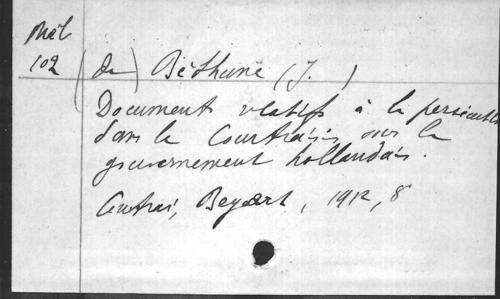 Mél
102
(de) Béthune (J. )
Documents relatifs à la persécution
dans le Courtraisis sous le
gouvernement hollandais.
Courtrai, Beyaert, 1912, 8°